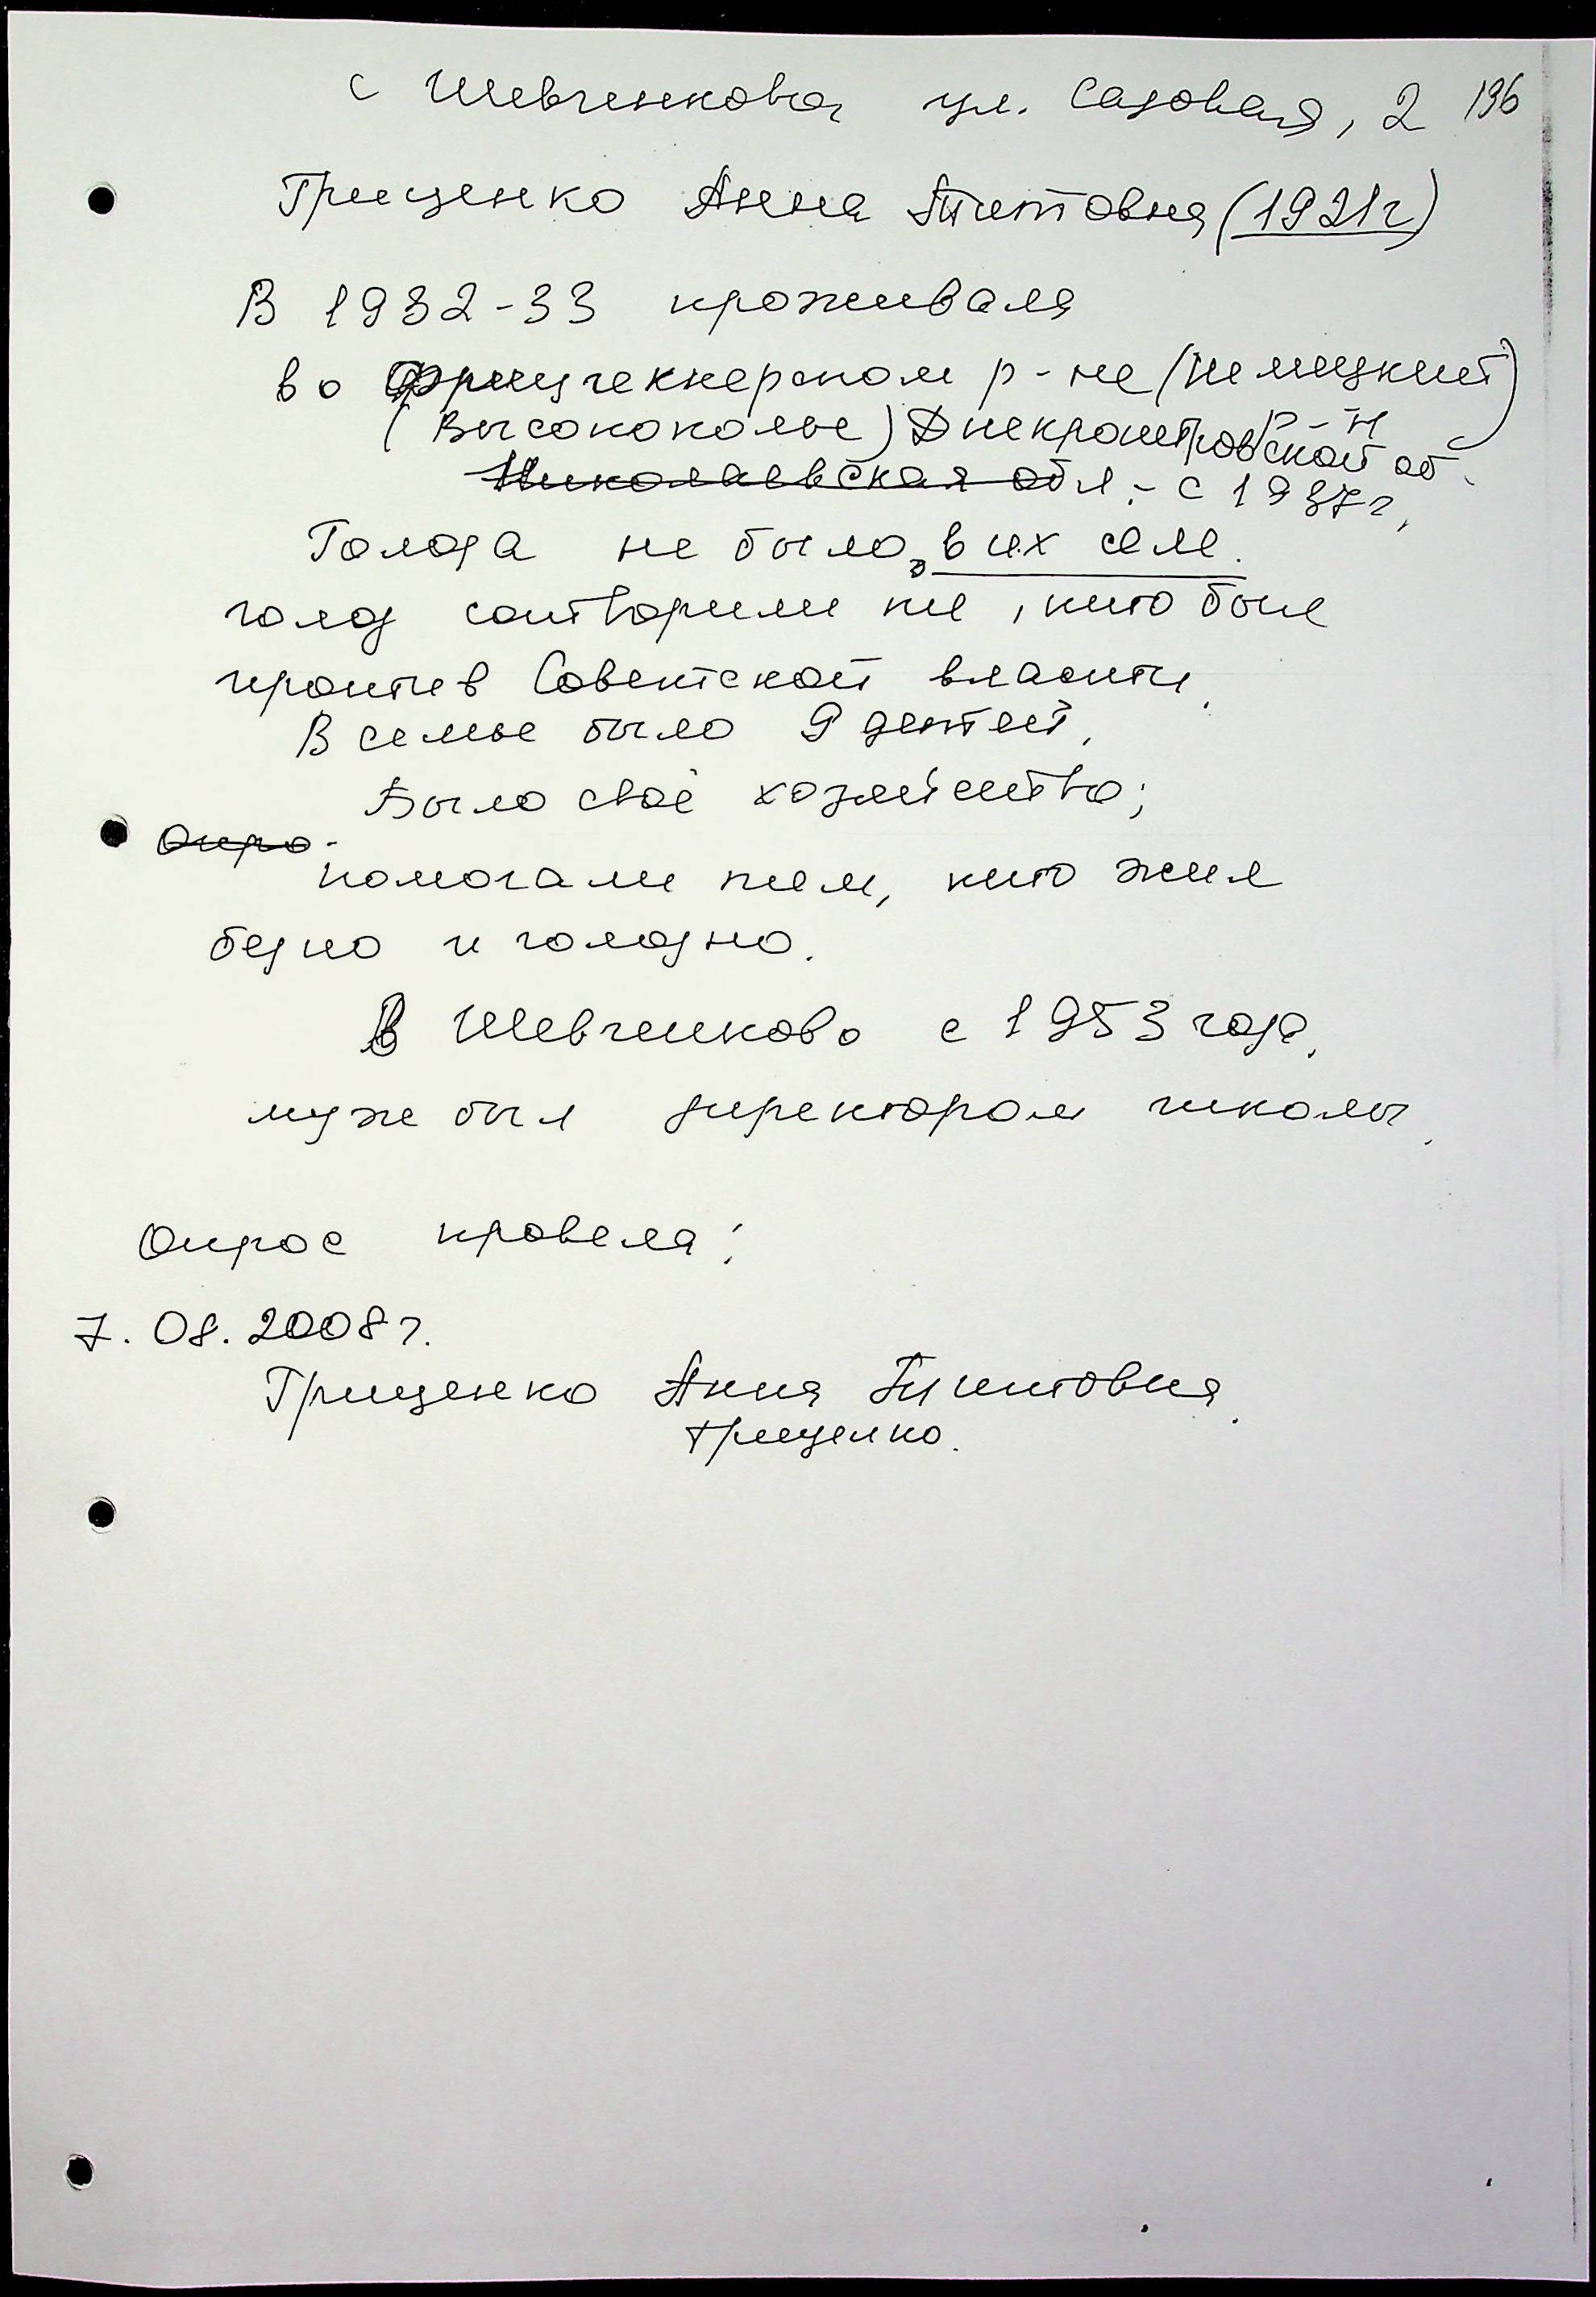 с Шевченково, ул. Садовая, 2 196
Грищенко Анна Титовна (1921г)
В 1932-33 проживала
во Фрицгеккерском р-не (Немецкий р-н)
(Высокополье) Днепропетровской об.
Николаевская обл. - с 1937г,
Голода не было, в их селе.
голод сотворили те, кто был
против Советской власти.
В семье было 9 детей.
Было своё хозяйство;
Опро-
помогали тем, кто жил
бедно и голодно.
В Шевченково с 1953 года.
муж был директором школы.
Опрос провела:
7. 08. 2008г.
Грищенко Анна Титовна.
Грищенко.